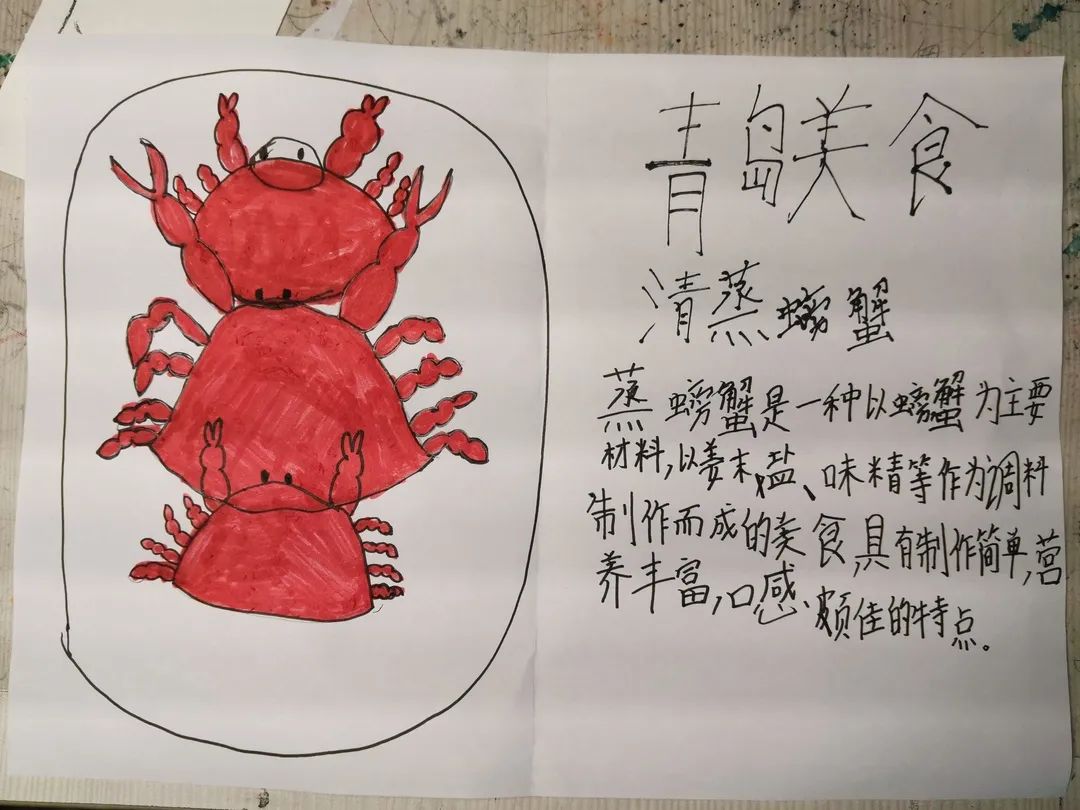 青岛美食
清蒸螃蟹
蒸螃蟹是一种以螃蟹为主要
材料,以姜末,盐、味精等作为调料
制作而成的美食,具有制作简单,营
养丰富,口感颇佳的特点。